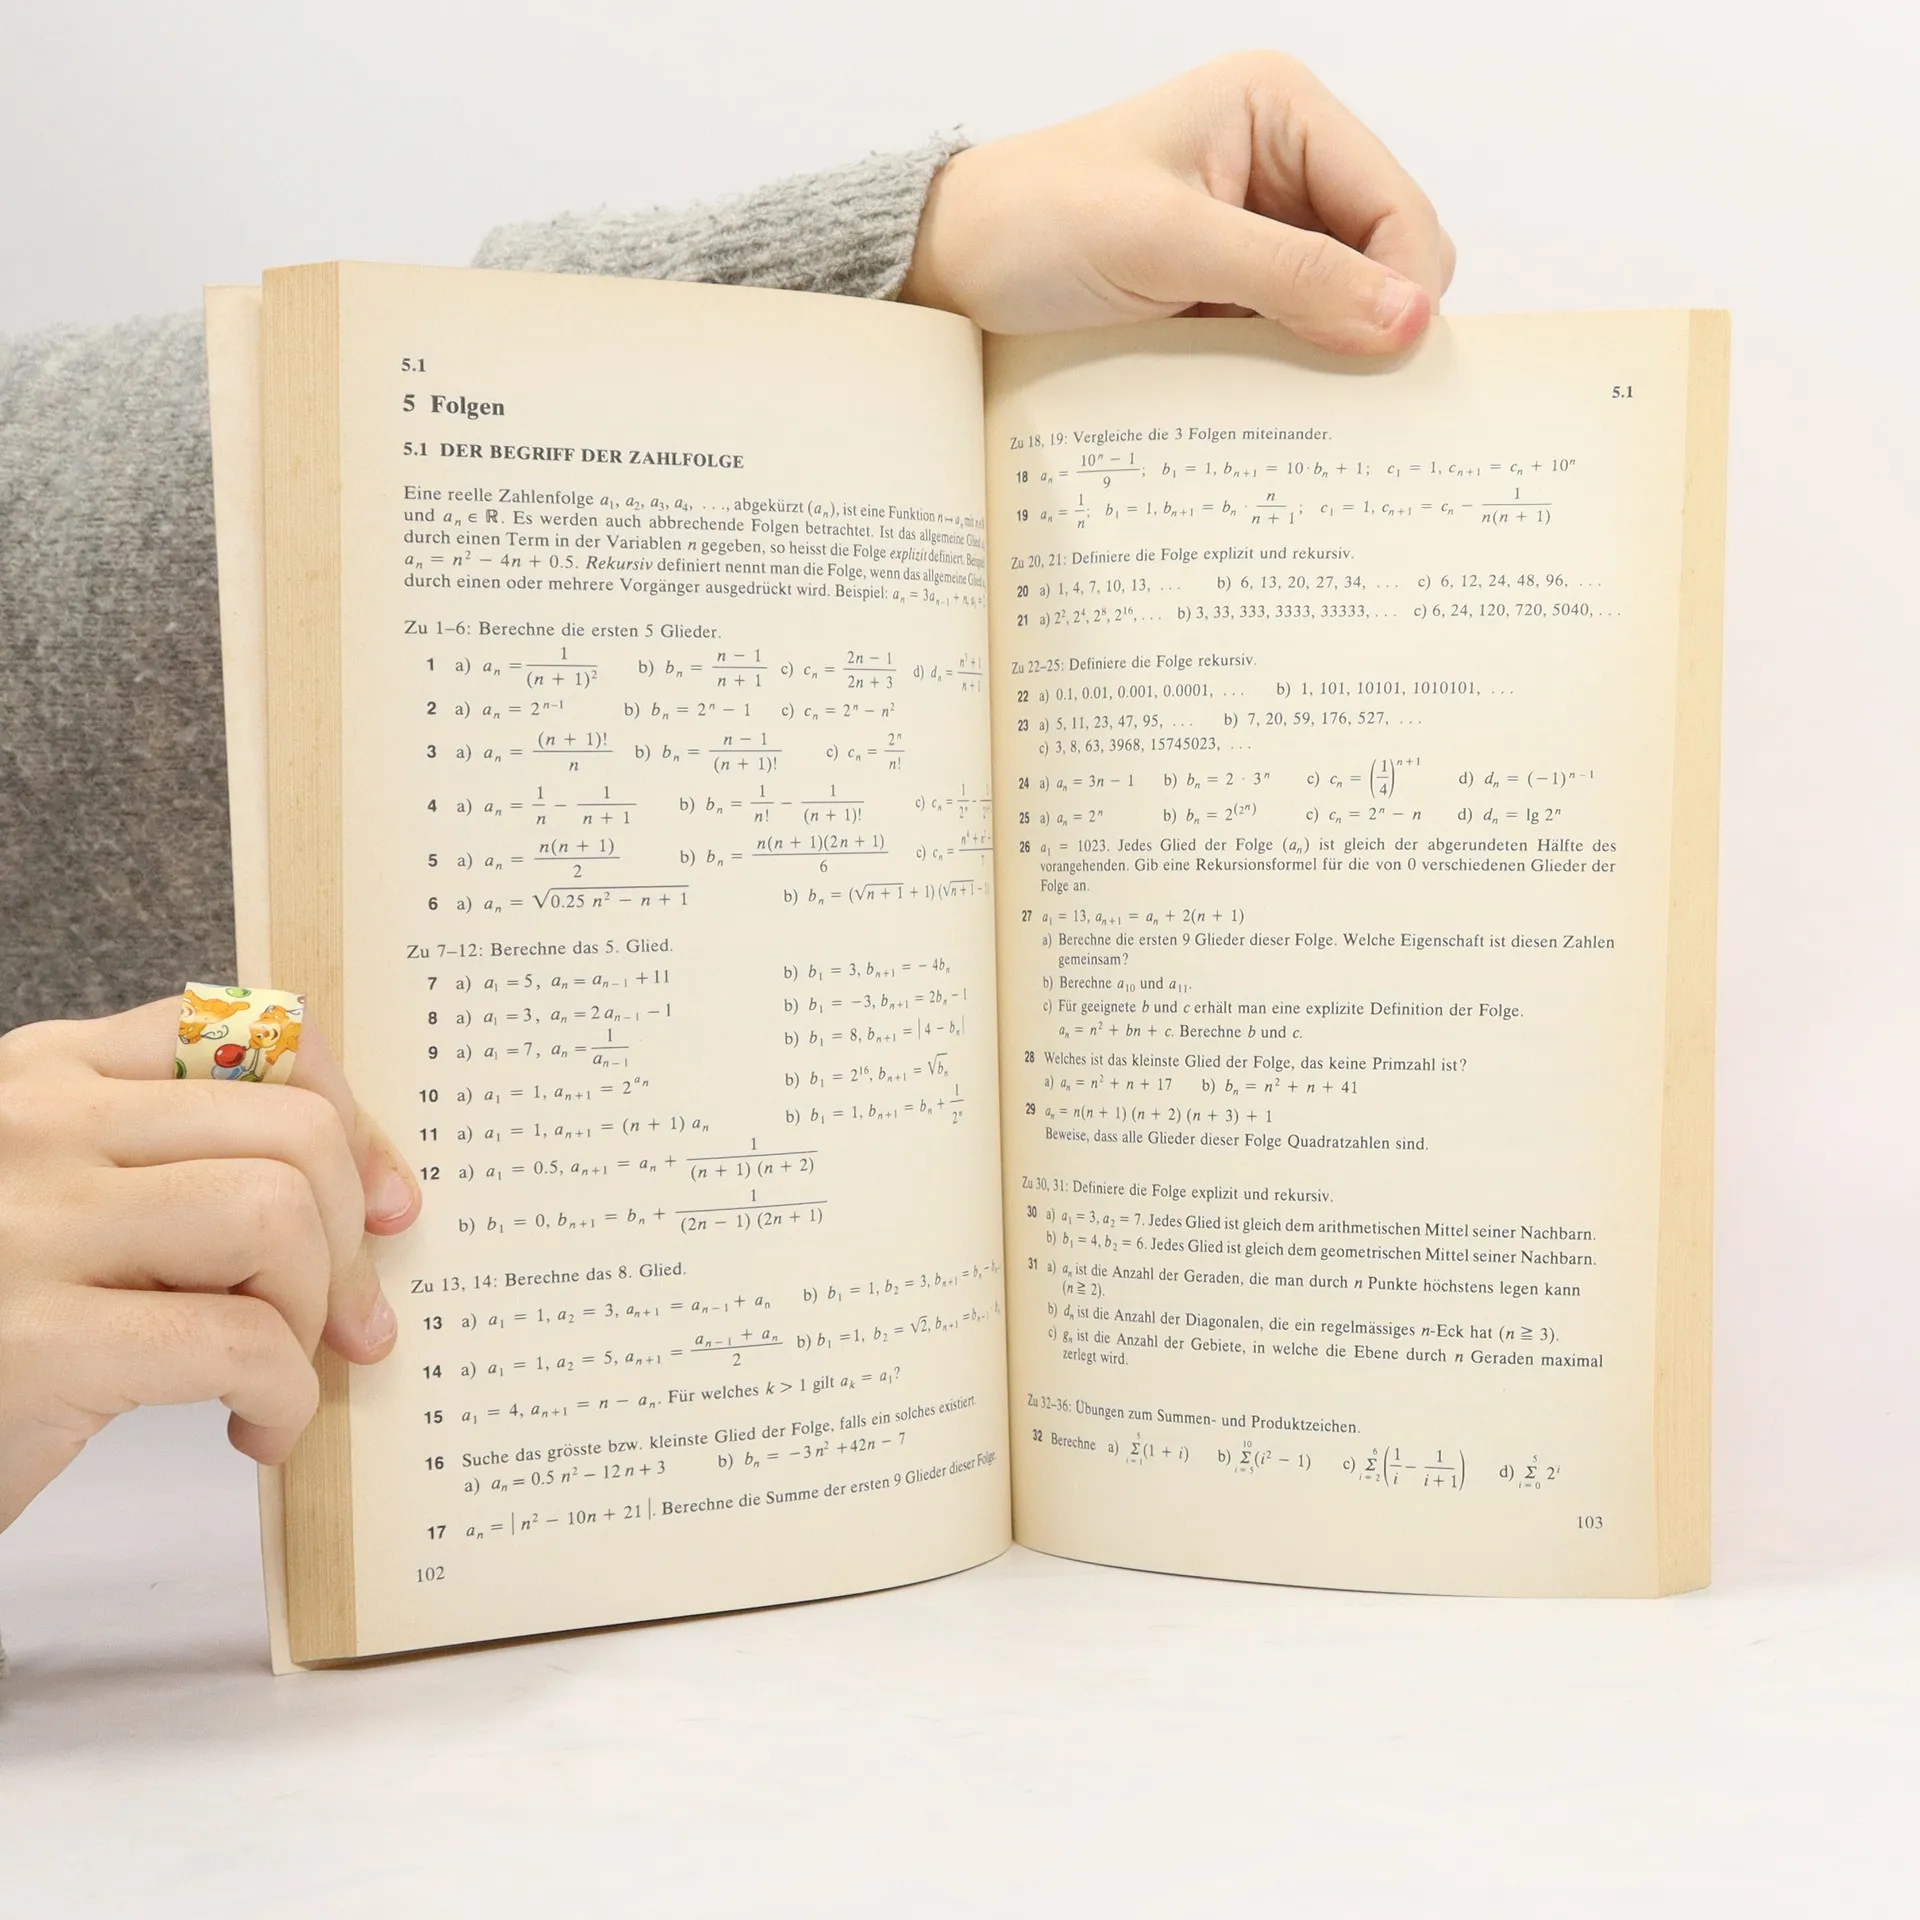 5.1
5 Folgen
5.1 DER BEGRIFF DER ZAHLFOLGE
Eine reelle Zahlenfolge a₁, a₂, a₃, a₄, . . ., abgekürzt (aₙ), ist eine Funktion n ↦ aₙ mit
und aₙ ∈ ℝ. Es werden auch abbrechende Folgen betrachtet. Ist das allgemeine Glied
durch einen Term in der Variablen n gegeben, so heisst die Folge explizit definiert.
aₙ = n² − 4n + 0.5. Rekursiv definiert nennt man die Folge, wenn das allgemeine
durch einen oder mehrere Vorgänger ausgedrückt wird. Beispiel: aₙ = 3aₙ₋₁ + n,
Zu 1–6: Berechne die ersten 5 Glieder.
1 a) aₙ = 1/(n + 1)² b) bₙ = (n − 1)/(n + 1) c) cₙ = (2n − 1)/(2n + 3) d) dₙ =
2 a) aₙ = 2ⁿ⁻¹ b) bₙ = 2ⁿ − 1 c) cₙ = 2ⁿ − n²
3 a) aₙ = (n + 1)!/n b) bₙ = (n − 1)/(n + 1)! c) cₙ = 2ⁿ/n!
4 a) aₙ = 1/n − 1/(n + 1) b) bₙ = 1/n! − 1/(n + 1)! c) cₙ =
5 a) aₙ = n(n + 1)/2 b) bₙ = n(n + 1)(2n + 1)/6 c) cₙ =
6 a) aₙ = √(0.25 n² − n + 1) b) bₙ = (√(n + 1) + 1)(√(n + 1) −
Zu 7–12: Berechne das 5. Glied.
7 a) a₁ = 5, aₙ = aₙ₋₁ + 11 b) b₁ = 3, bₙ₊₁ = − 4bₙ
8 a) a₁ = 3, aₙ = 2 aₙ₋₁ − 1 b) b₁ = −3, bₙ₊₁ = 2bₙ − 1
9 a) a₁ = 7, aₙ = 1/aₙ₋₁ b) b₁ = 8, bₙ₊₁ = |4 − bₙ|
10 a) a₁ = 1, aₙ₊₁ = 2^(aₙ) b) b₁ = 2¹⁶, bₙ₊₁ = √bₙ
11 a) a₁ = 1, aₙ₊₁ = (n + 1) aₙ b) b₁ = 1, bₙ₊₁ = bₙ + 1/2ⁿ
12 a) a₁ = 0.5, aₙ₊₁ = aₙ + 1/((n + 1) (n + 2))
b) b₁ = 0, bₙ₊₁ = bₙ + 1/((2n − 1) (2n + 1))
Zu 13, 14: Berechne das 8. Glied.
13 a) a₁ = 1, a₂ = 3, aₙ₊₁ = aₙ₋₁ + aₙ b) b₁ = 1, b₂ = 3, bₙ₊₁ = bₙ −
14 a) a₁ = 1, a₂ = 5, aₙ₊₁ = (aₙ₋₁ + aₙ)/2 b) b₁ = 1, b₂ = √2, bₙ₊₁ = bₙ₋₁
15 a₁ = 4, aₙ₊₁ = n − aₙ. Für welches k > 1 gilt aₖ = a₁?
16 Suche das grösste bzw. kleinste Glied der Folge, falls ein solches existiert.
a) aₙ = 0.5 n² − 12 n + 3 b) bₙ = −3 n² + 42n − 7
17 aₙ = | n² − 10n + 21 |. Berechne die Summe der ersten 9 Glieder dieser Folge.
102
5.1
Zu 18, 19: Vergleiche die 3 Folgen miteinander.
18 aₙ = (10ⁿ − 1)/9; b₁ = 1, bₙ₊₁ = 10·bₙ + 1; c₁ = 1, cₙ₊₁ = cₙ + 10ⁿ
19 aₙ = 1/n; b₁ = 1, bₙ₊₁ = bₙ · n/(n + 1); c₁ = 1, cₙ₊₁ = cₙ − 1/(n(n + 1))
Zu 20, 21: Definiere die Folge explizit und rekursiv.
20 a) 1, 4, 7, 10, 13, . . . b) 6, 13, 20, 27, 34, . . . c) 6, 12, 24, 48, 96, . . .
21 a) 2², 2⁴, 2⁸, 2¹⁶, . . . b) 3, 33, 333, 3333, 33333, . . . c) 6, 24, 120, 720, 5040, . . .
Zu 22–25: Definiere die Folge rekursiv.
22 a) 0.1, 0.01, 0.001, 0.0001, . . . b) 1, 101, 10101, 1010101, . . .
23 a) 5, 11, 23, 47, 95, . . . b) 7, 20, 59, 176, 527, . . .
c) 3, 8, 63, 3968, 15745023, . . .
24 a) aₙ = 3n − 1 b) bₙ = 2 · 3ⁿ c) cₙ = (1/4)ⁿ⁺¹ d) dₙ = (−1)ⁿ⁻¹
25 a) aₙ = 2ⁿ b) bₙ = 2^(2ⁿ) c) cₙ = 2ⁿ − n d) dₙ = lg 2ⁿ
26 a₁ = 1023. Jedes Glied der Folge (aₙ) ist gleich der abgerundeten Hälfte des
vorangehenden. Gib eine Rekursionsformel für die von 0 verschiedenen Glieder der
Folge an.
27 a₁ = 13, aₙ₊₁ = aₙ + 2(n + 1)
a) Berechne die ersten 9 Glieder dieser Folge. Welche Eigenschaft ist diesen Zahlen
gemeinsam?
b) Berechne a₁₀ und a₁₁.
c) Für geeignete b und c erhält man eine explizite Definition der Folge.
aₙ = n² + bn + c. Berechne b und c.
28 Welches ist das kleinste Glied der Folge, das keine Primzahl ist?
a) aₙ = n² + n + 17 b) bₙ = n² + n + 41
29 aₙ = n(n + 1) (n + 2) (n + 3) + 1
Beweise, dass alle Glieder dieser Folge Quadratzahlen sind.
Zu 30, 31: Definiere die Folge explizit und rekursiv.
30 a) a₁ = 3, a₂ = 7. Jedes Glied ist gleich dem arithmetischen Mittel seiner Nachbarn.
b) b₁ = 4, b₂ = 6. Jedes Glied ist gleich dem geometrischen Mittel seiner Nachbarn.
31 a) aₙ ist die Anzahl der Geraden, die man durch n Punkte höchstens legen kann
(n ≧ 2).
b) dₙ ist die Anzahl der Diagonalen, die ein regelmässiges n-Eck hat (n ≧ 3).
c) gₙ ist die Anzahl der Gebiete, in welche die Ebene durch n Geraden maximal
zerlegt wird.
Zu 32–36: Übungen zum Summen- und Produktzeichen.
32 Berechne a) ⁵Σᵢ₌₁(1 + i) b) ¹⁰Σᵢ₌₅(i² − 1) c) ⁶Σᵢ₌₂(1/i − 1/(i + 1)) d) ⁵Σᵢ₌₀ 2ⁱ
103